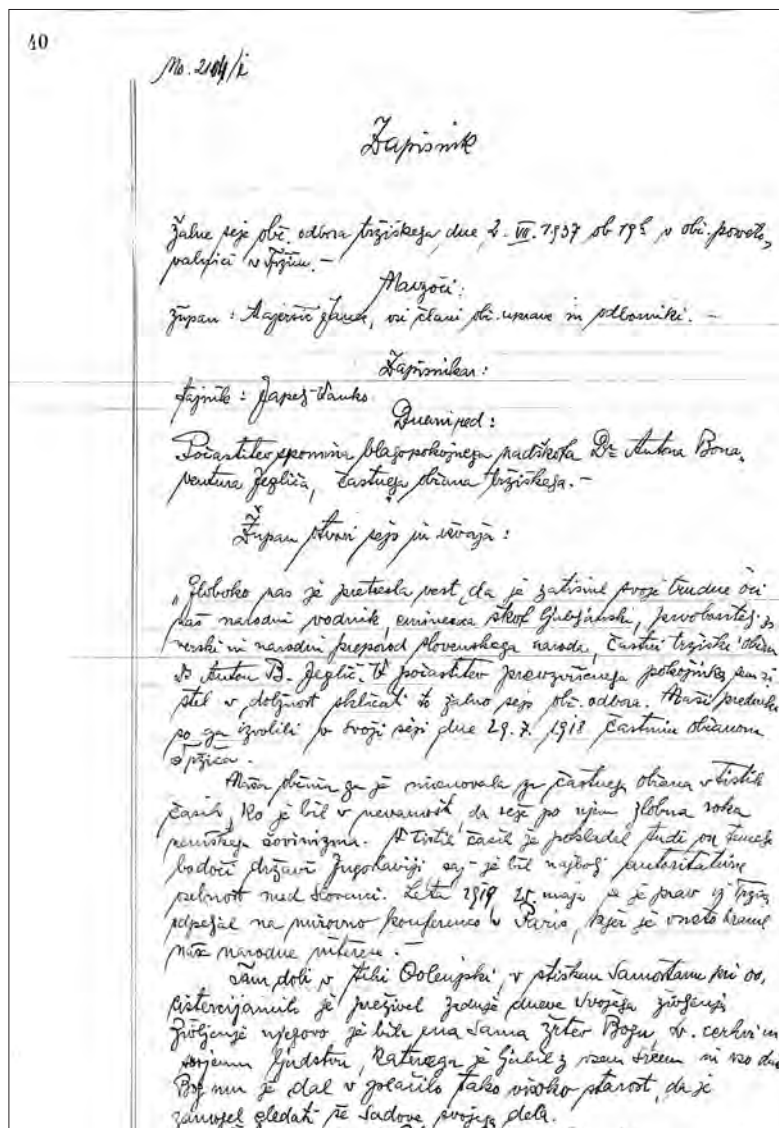 40
No. 2104/i
Zapisnik
žalne seje obč. odbora tržiškega, dne 2. VII. 1937 ob 19h v obč. posveto-
valnici v Tržiču. —
Navzoči:
župan: Majeršič Janez, vsi člani obč. uprave in odborniki. —
Zapisnikar:
tajnik: Japelj Vanko
Dnevni red:
Počastitev spomina blagopokojnega nadškofa Dr. Antona Bona-
ventura Jegliča, častnega občana tržiškega. —
Župan otvori sejo in izvaja:
„Globoko nas je pretresla vest, da je zatisnil svoje trudne oči
naš narodni vodnik, eminenca škof ljubljanski, prvoboritelj za
verski in narodni preporod slovenskega naroda, častni tržiški občan
Dr Anton B. Jeglič. V počastitev prevzvišenega pokojnika sem si
štel v dolžnost sklicati to žalno sejo obč. odbora. Naši predniki
so ga izvolili v svoji seji dne 29. 7. 1918 častnim občanom
Tržiča.
Naša občina ga je imenovala za častnega občana v tistih
časih, ko je bil v nevarnosti, da seže po njem zlobna roka
nemškega šovinizma. V tistih časih je pokladal tudi on temelje
bodoči državi Jugoslaviji saj je bil najbolj autoritativna
osebnost med Slovenci. Leta 1919 25. maja se je prav iz Tržiča
odpeljal na mirovno konferenco v Paris, kjer je vneto branil
naše narodne interese. —
Tam doli v tihi Dolenjski, v stiškem samostanu pri oo.
cistercijanih je preživel zadnje dneve svojega življenja
Življenje njegovo je bila ena sama žrtev Bogu, sv. cerkvi in
svojemu ljudstvu, katerega je ljubil z vsem srcem in vso dušo
Bog mu je dal v plačilo tako visoko starost, da je
zamogel gledati še sadove svojega dela.